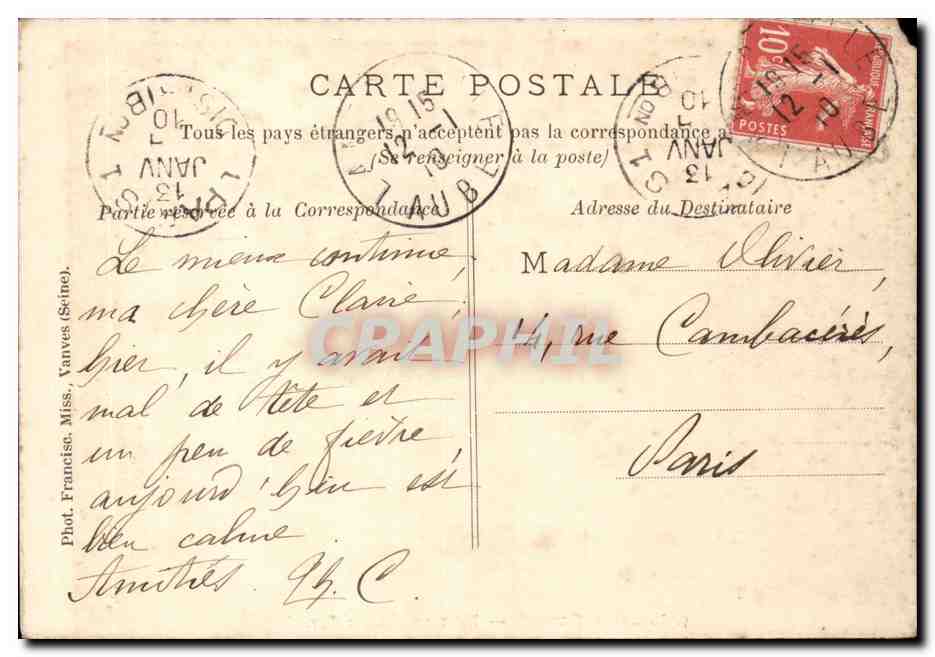 CARTE POSTALE
Tous les pays étrangers n'acceptent pas la correspondance a
(Se renseigner à la poste)
Partie réservée à la Correspondance
Adresse du Destinataire
Le mieux continue,
ma chère Claire !
hier, il y avait
mal de tête et
un peu de fièvre,
aujourd'hui est
bien calme.
Amitiés. Ph. C.
Madame Olivier,
14, rue Cambacérès,
Paris
Phot. Francisc. Miss., Vanves (Seine).
10c
POSTES
RÉPUBLIQUE FRANÇAISE
19 15
12 -1
10
AUBE
19 15
12 -1
10
AU
DISTRIBON
13
JANV
10
13
JANV
10
CPARAMA
CRAPHIL